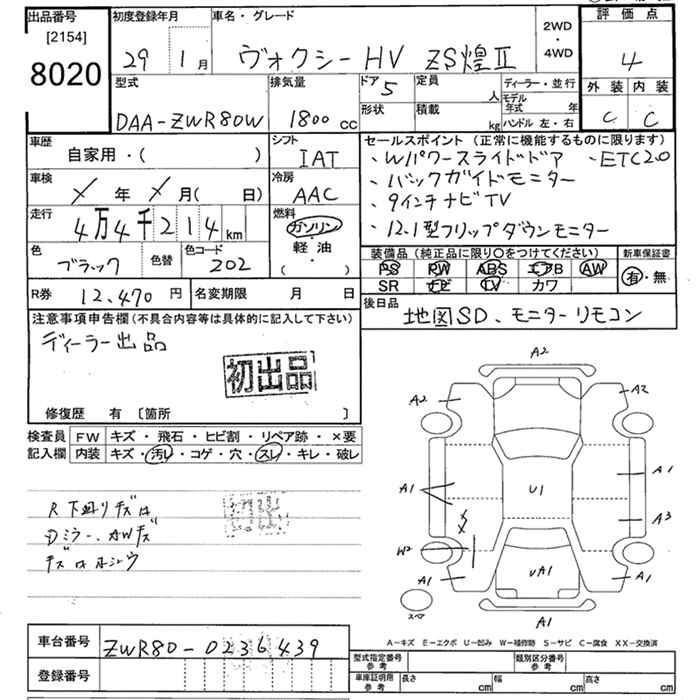 出品番号 初度登録年月 車名・グレード 2WD・4WD 評価点
[2154]
8020 29 1月 ヴォクシーHV ZS煌Ⅱ 4
型式 排気量 ドア 5 定員 人 ディーラー・並行 外装 内装
DAA-ZWR80W 1800cc 形状 積載 kg モデル年式 年 ハンドル 左・右 C C
車歴 シフト セールスポイント(正常に機能するものに限ります)
自家用・( ) IAT ・Wパワースライドドア ・ETC2.0
車検 冷房 ・バックガイドモニター
× 年 × 月( 日) AAC ・9インチナビTV
走行 4万4千214km 燃料 ガソリン ・12.1型フリップダウンモニター
軽油
( ・ )
色 ブラック 色替 色コード 202
装備品(純正品に限り○をつけてください) 新車保証書
PS PW ABS エアB AW 有・無
SR ナビ TV カワ
R券 12,470円 名変期限 月 日
後日品 地図SD、モニターリモコン
注意事項申告欄(不具合内容等は具体的に記入して下さい)
ディーラー出品
初出品
修復歴 有〔箇所 〕
検査員記入欄 FW キズ・飛石・ヒビ割・リペア跡・×要
内装 キズ・汚レ・コゲ・穴・スレ・キレ・破レ
R下廻りキズ
Dミラー、AWキズ
A2
A2 A2
A1 A1
U1
A3
W2
A1 UA1 A1
スペア
A1
A-キズ E-エクボ U-凹み W-補修跡 S-サビ C-腐食 XX-交換済
車台番号 ZWR80-0236439
登録番号
型式指定番号 参考 類別区分番号 参考
車庫証明用 参考 長さ cm 幅 cm 高さ cm